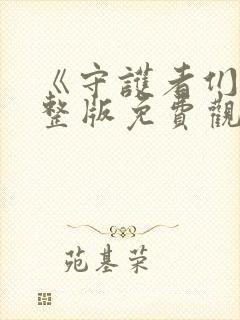 《守護者们
整版免費觀
苑基荣